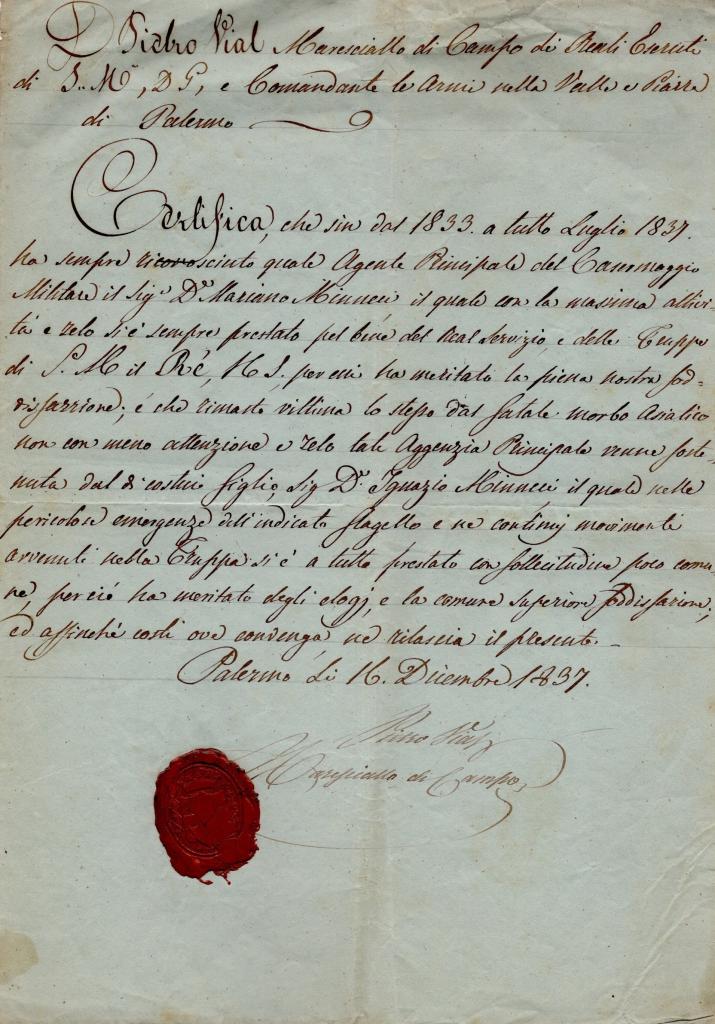 D. Pietro Vial Maresciallo di Campo de Reali Eserciti
di S. M., D. G., e Comandante le Armi nella Valle e Piazza
di Palermo
Certifica, che sin dal 1833. a tutto Luglio 1837.
ha sempre riconosciuto quale Agente Principale del Casermaggio
Militare il Sig.r D.n Mariano Minneci il quale con la massima attivi-
tà e zelo si è sempre prestato pel bene del Real Servizio, e delle Truppe
di S. M. il Rè, N. S. per cui ha meritato la piena nostra sod-
disfazzione; è che rimasto vittima lo stesso dal fatale morbo Asiatico
non con meno attenzione e zelo tale Aggenzia Principale venne soste-
nuta dal di costui figlio, Sig. D.n Ignazio Minneci il quale nelle
pericolose emergenze dell'indicato flagello e ne continuj movimenti
avvenuti nella Truppa si è a tutto prestato con sollecitudine poco comu-
ne, perciò ha meritato degli elogj, e la comune superiore soddisfazione;
ed affinchè costi ove convenga, ne rilascia il presente.
Palermo li 16. Dicembre 1837.
Pietro Vial
Maresciallo di Campo